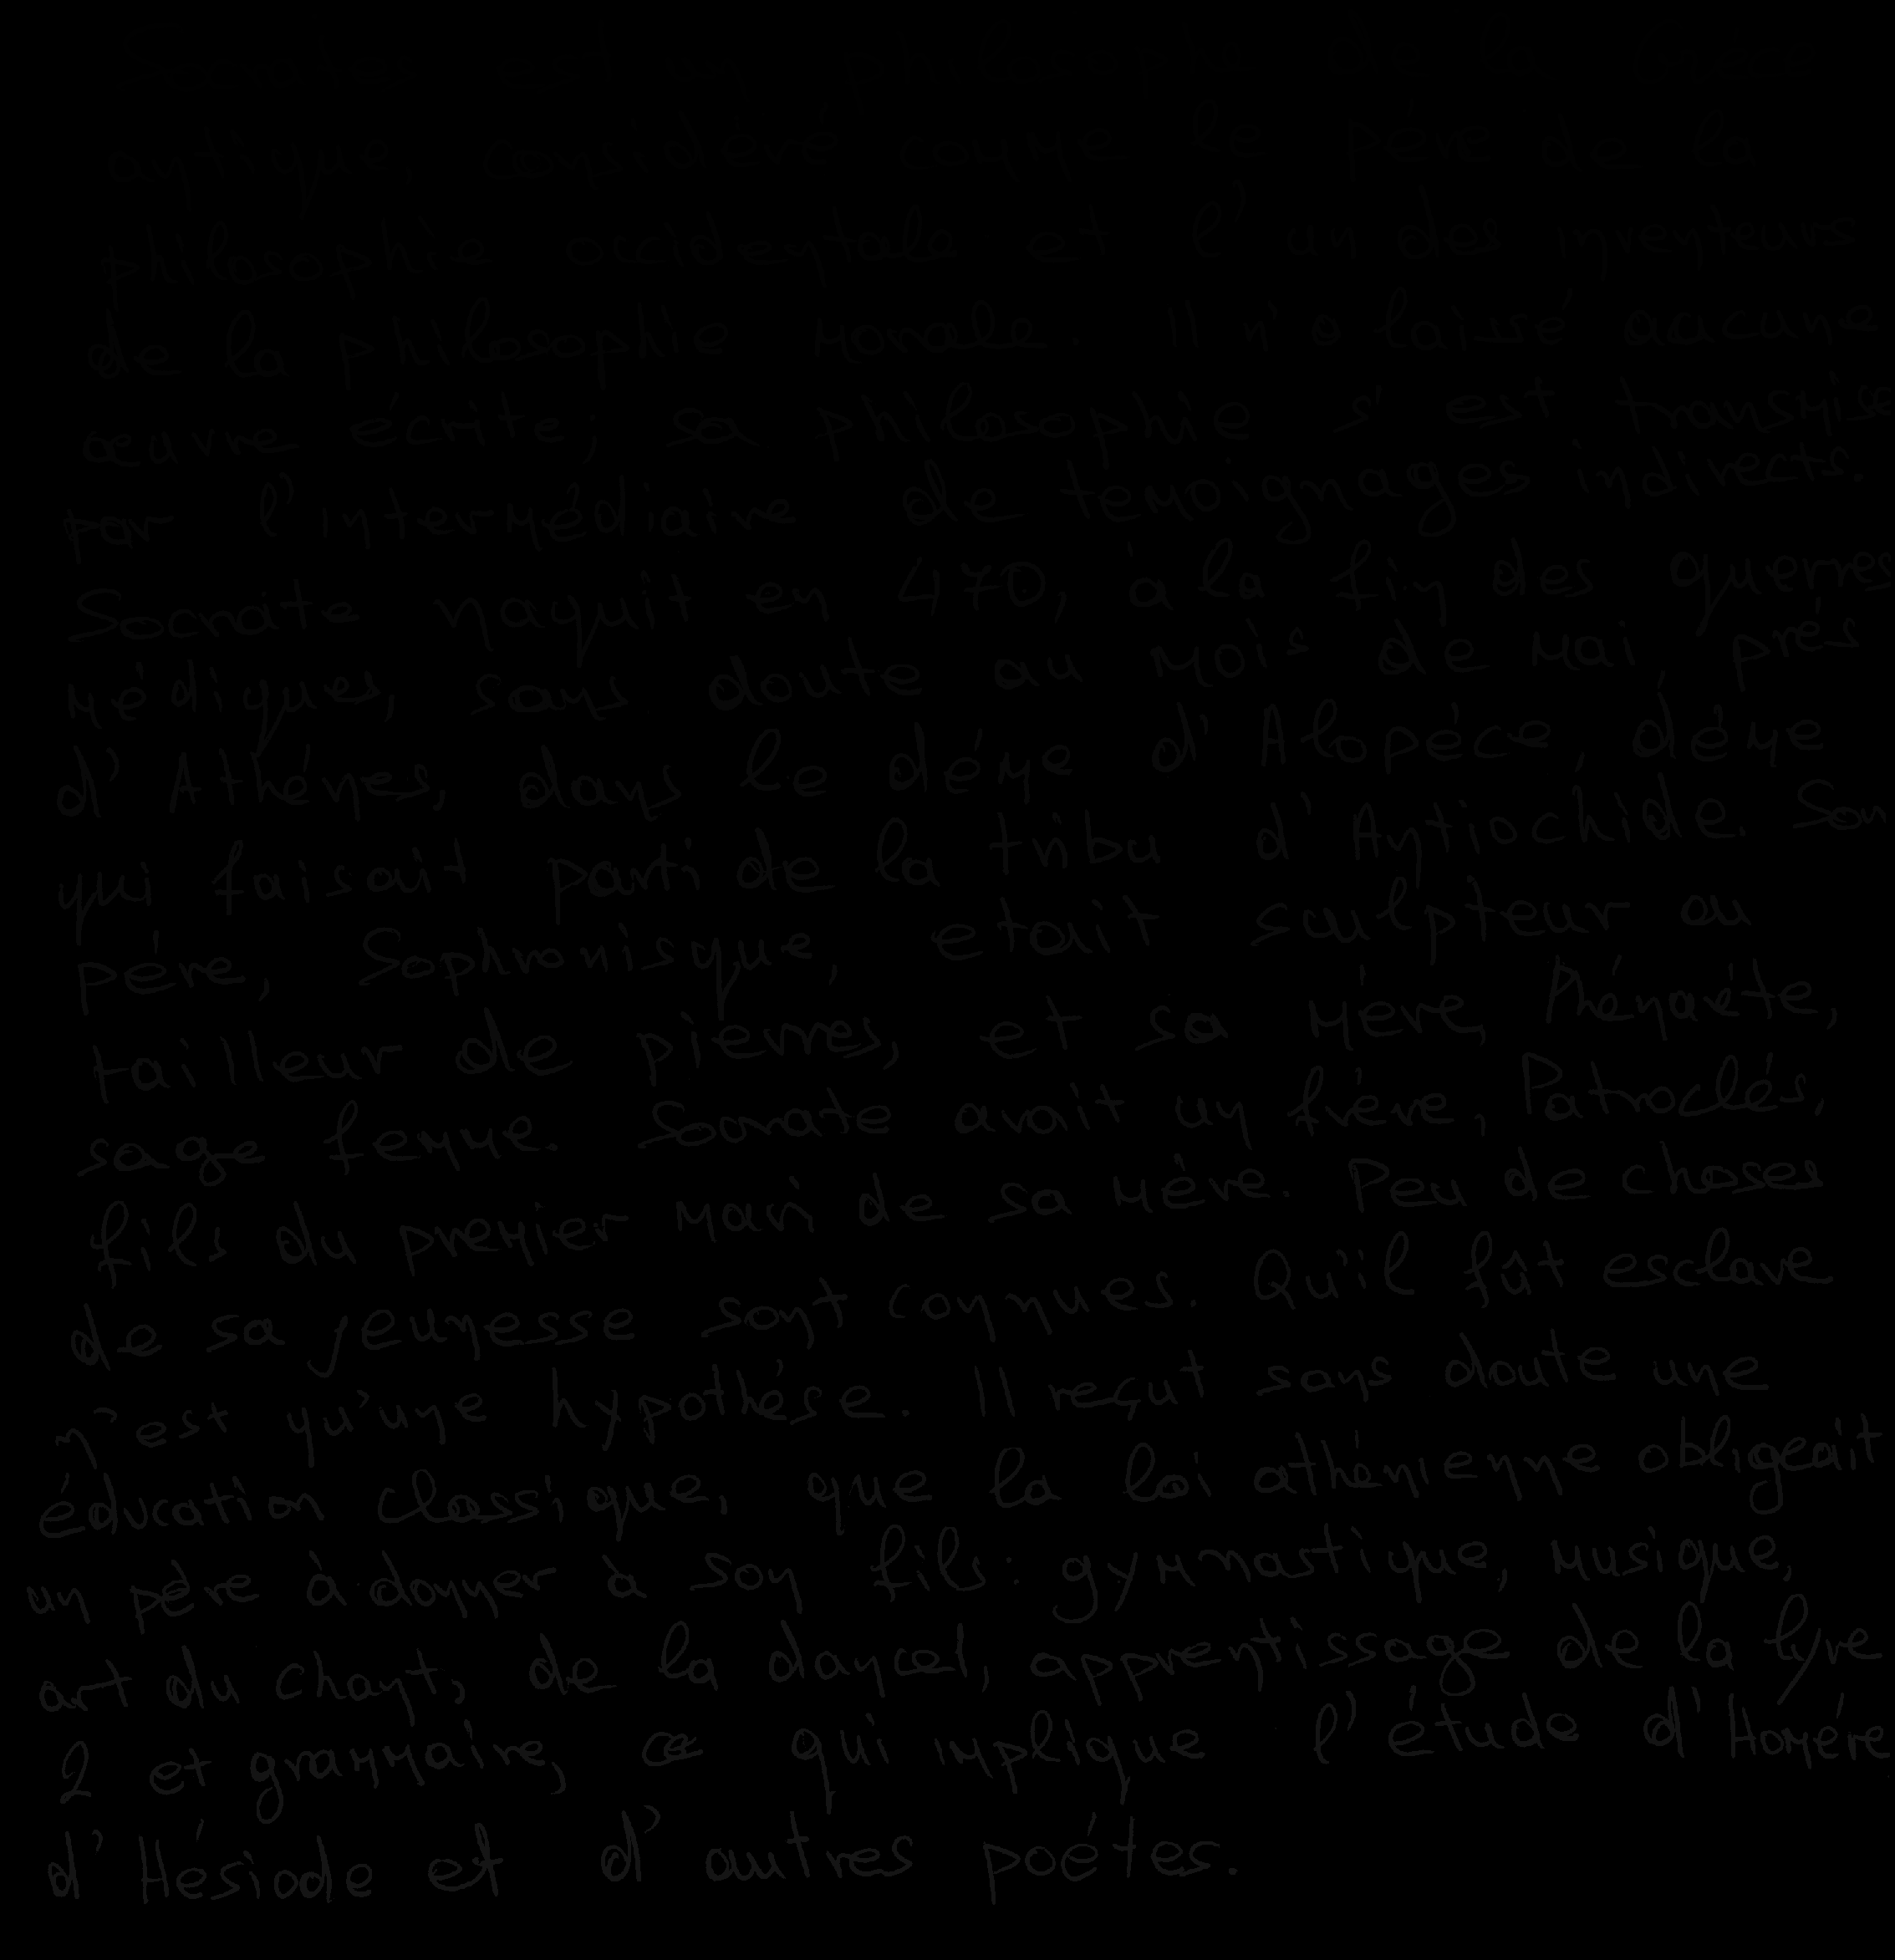 antique, considéré comme le père de la
philosophie occidentale et l'un des inventeurs
de la philosophie morale. Il n'a laissé aucune
œuvre écrite; sa philosophie s'est transmise
par l'intermédiaire de temoignages indirects.
Socrate naquit en 470, à la fin des querres
médiques, sans doute au mois de mai, prés
d'Athénes, dans le déme d'Alopéce, déme
qui faisait parti de la tribu d'Antiochide. Son
pére, Sophronisque, etait sculpteur ou
tailleur de pierres, et sa mère, Phénaréte,
sage femme. Socrate avait un frère, Patroclés,
fils du premier mari de sa mére. Peu de choses
de sa jeunesse sont connues. Qu'il fût esclave
n'est qu'une hypothése. Il reçut sans doute une
éducation classique, que la loi athénienne obligeait
un père à donner à son fils: gymnastique, musique,
art du chant, de la dance, apprentissage de la lyre
2 et grammaire, ce qui implique l'étude d'Homére
d'Hésiode et d'autres poétes.